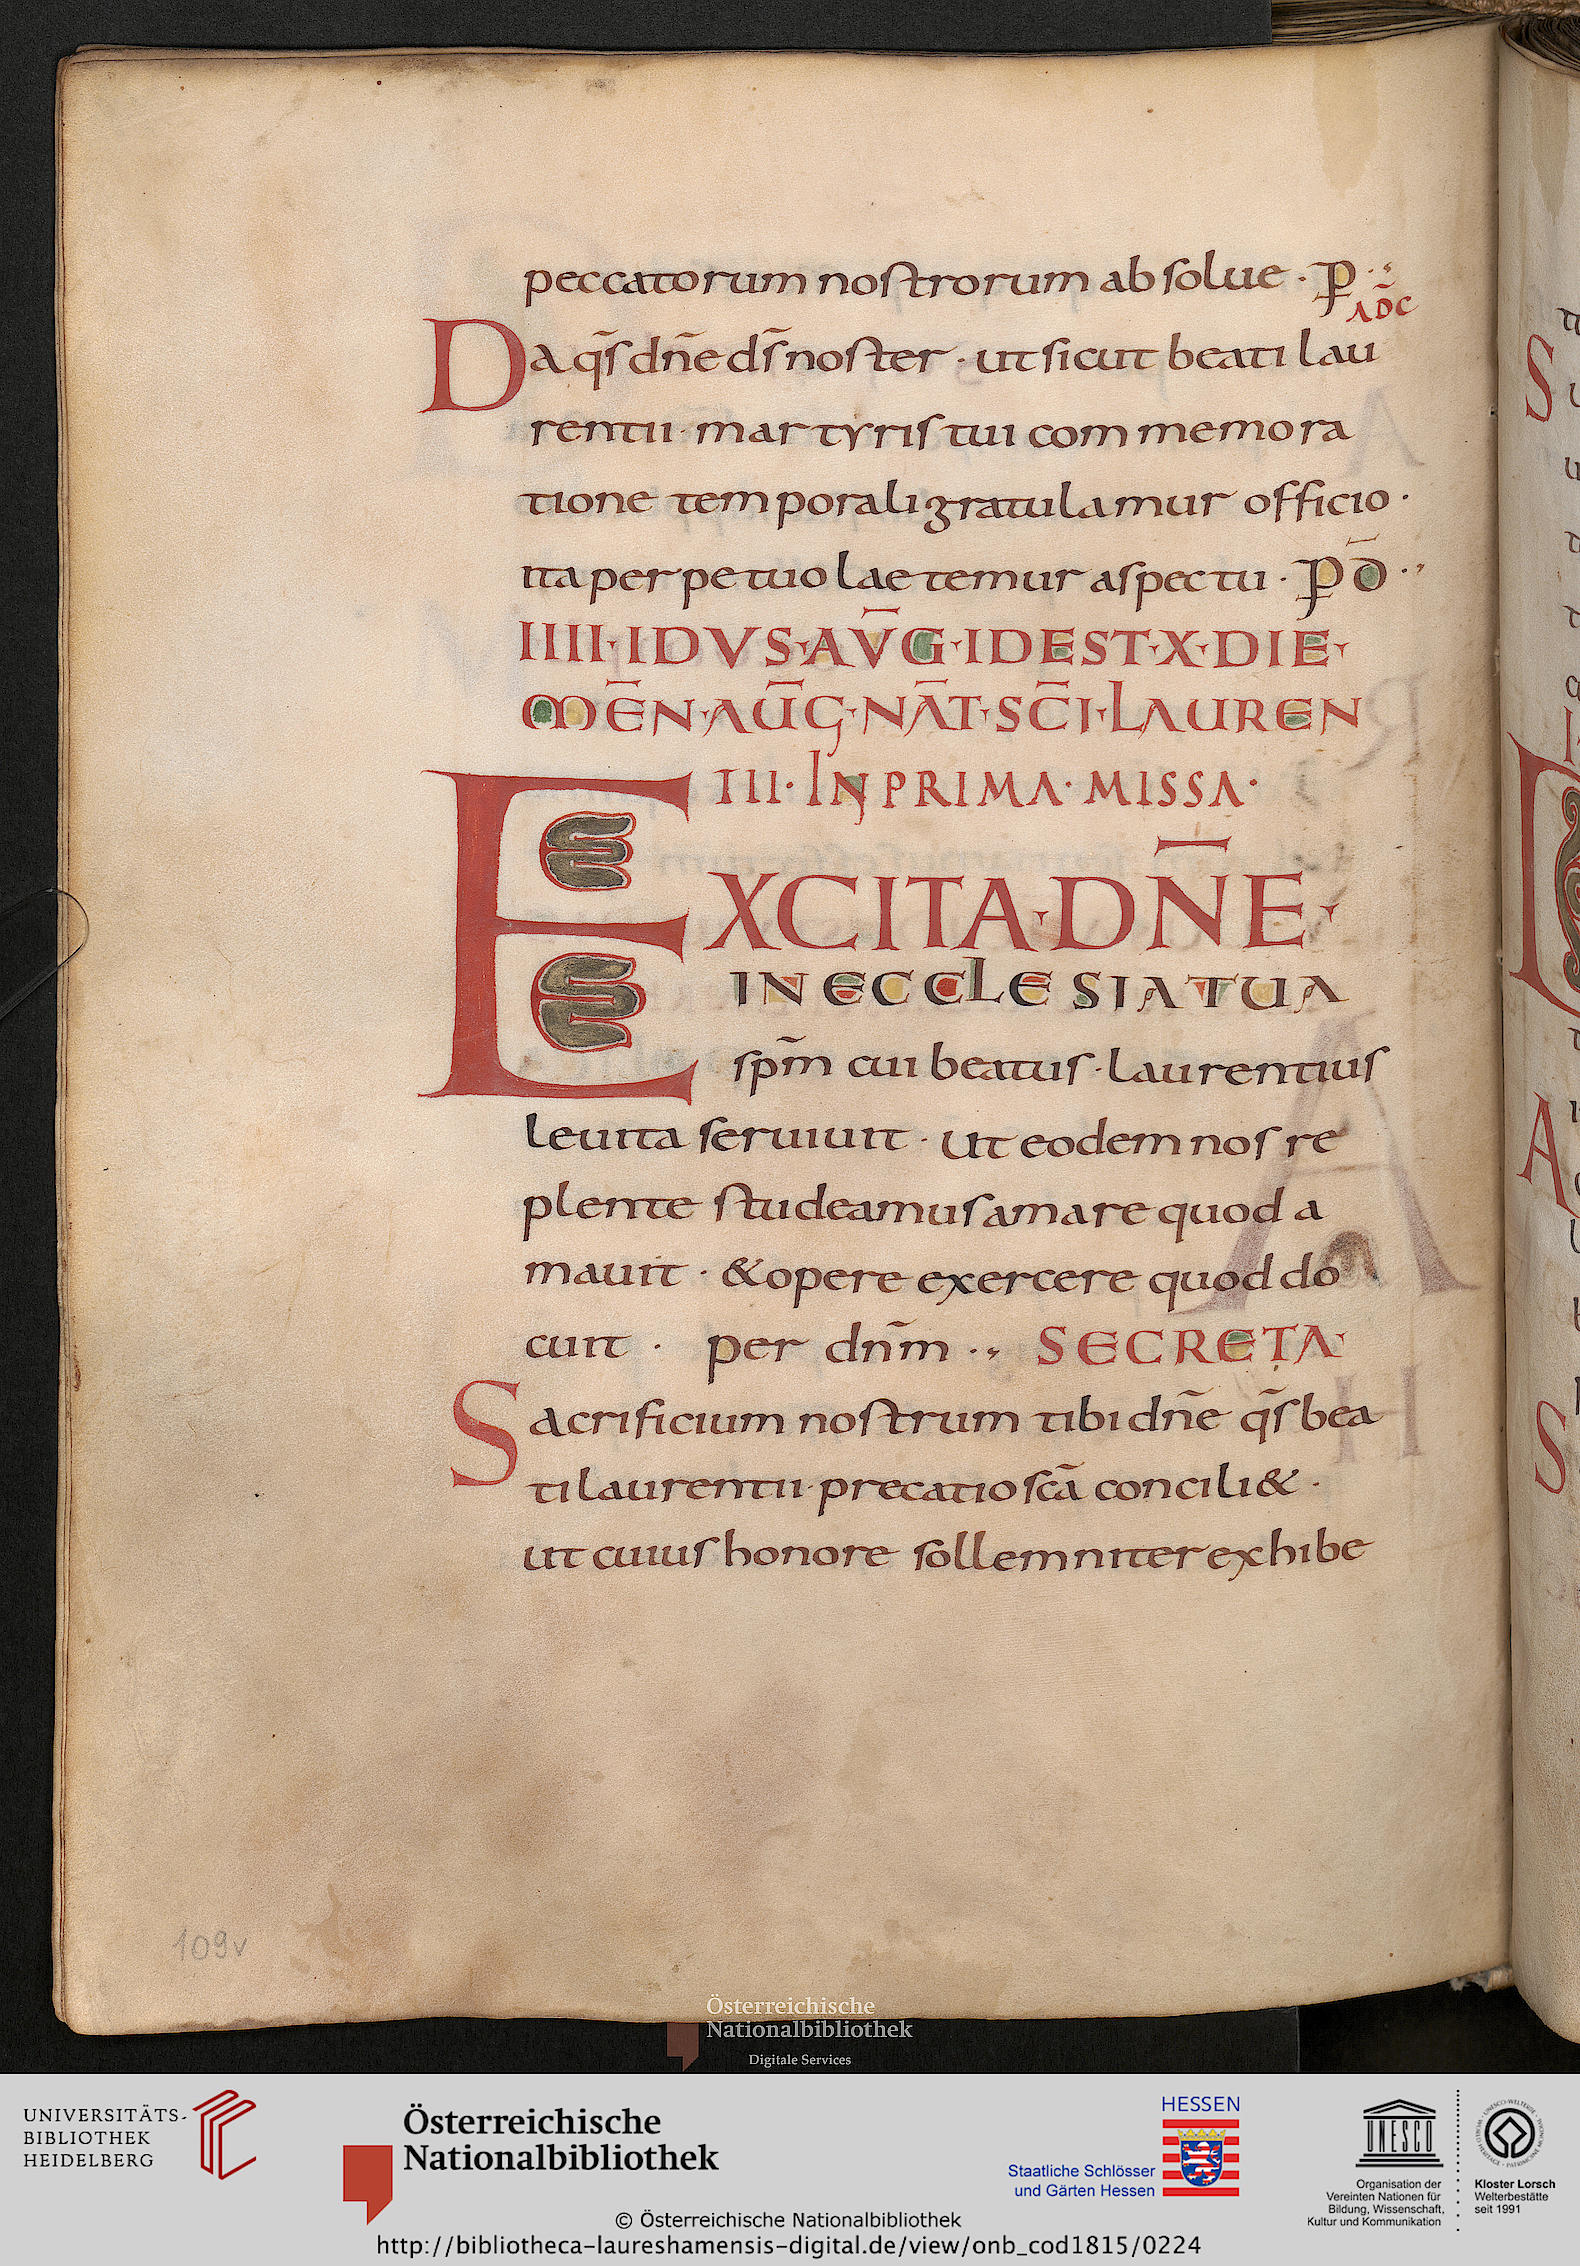 peccatorum nostrorum absolue · P̄ ··
AD̄C
Da q̄s dn̄e ds̄ noster · ut sicut beati lau
rentii · martyris tui commemora
tione temporali gratulamur officio ·
ita perpetuo laetemur aspectu · P̄D̄ ··
IIII · IDVS · AV̄G · IDEST · X · DIE ·
MĒN · AŪG · NĀT · SC̄I · LAUREN
TII · IN PRIMA · MISSA ·
EXCITA · DN̄E ·
IN ECCLESIA TUA
sp̄m cui beatus · laurentius
leuita seruiuit · ut eodem nos re
plente studeamus amare quod a
mauit · & opere exercere quod do
cuit · per dn̄m ·· SECRETA ·
Sacrificium nostrum tibi dn̄e q̄s bea
ti laurentii · precatio sc̄a concili& ·
ut cuius honore sollemniter exhibe
109v
Österreichische
Nationalbibliothek
Digitale Services
UNIVERSITÄTS-
BIBLIOTHEK
HEIDELBERG
Österreichische
Nationalbibliothek
HESSEN
Staatliche Schlösser
und Gärten Hessen
UNESCO
Organisation der
Vereinten Nationen für
Bildung, Wissenschaft,
Kultur und Kommunikation
Kloster Lorsch
Welterbestätte
seit 1991
© Österreichische Nationalbibliothek
http://bibliotheca-laureshamensis-digital.de/view/onb_cod1815/0224